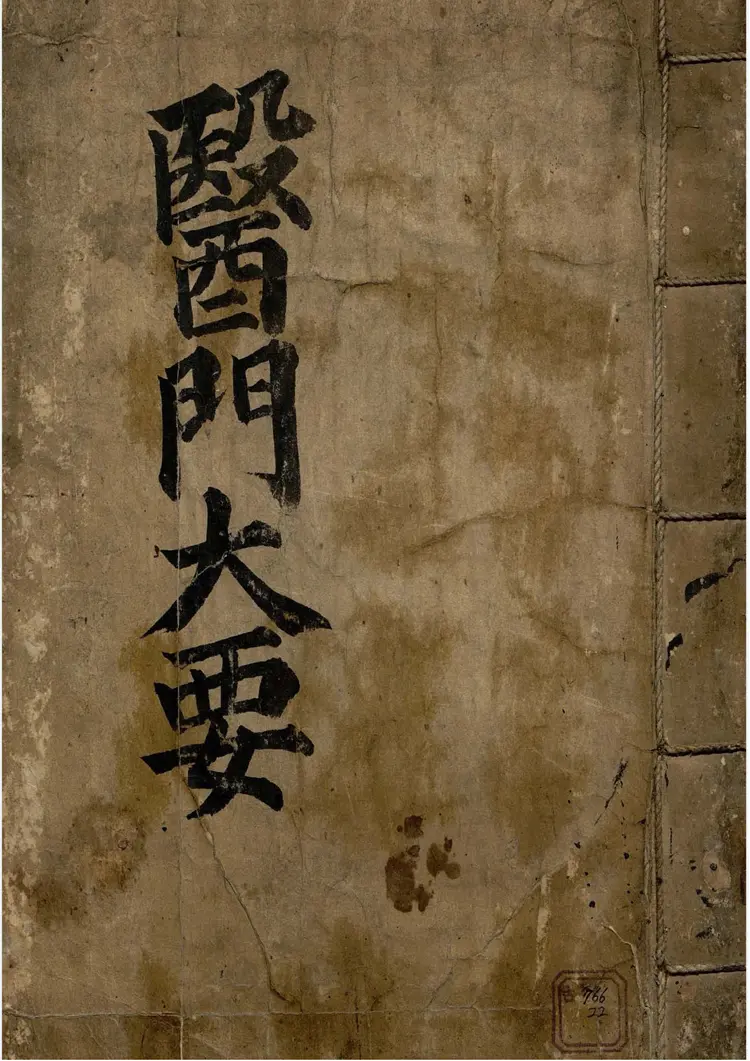 醫門大要
古
766
22